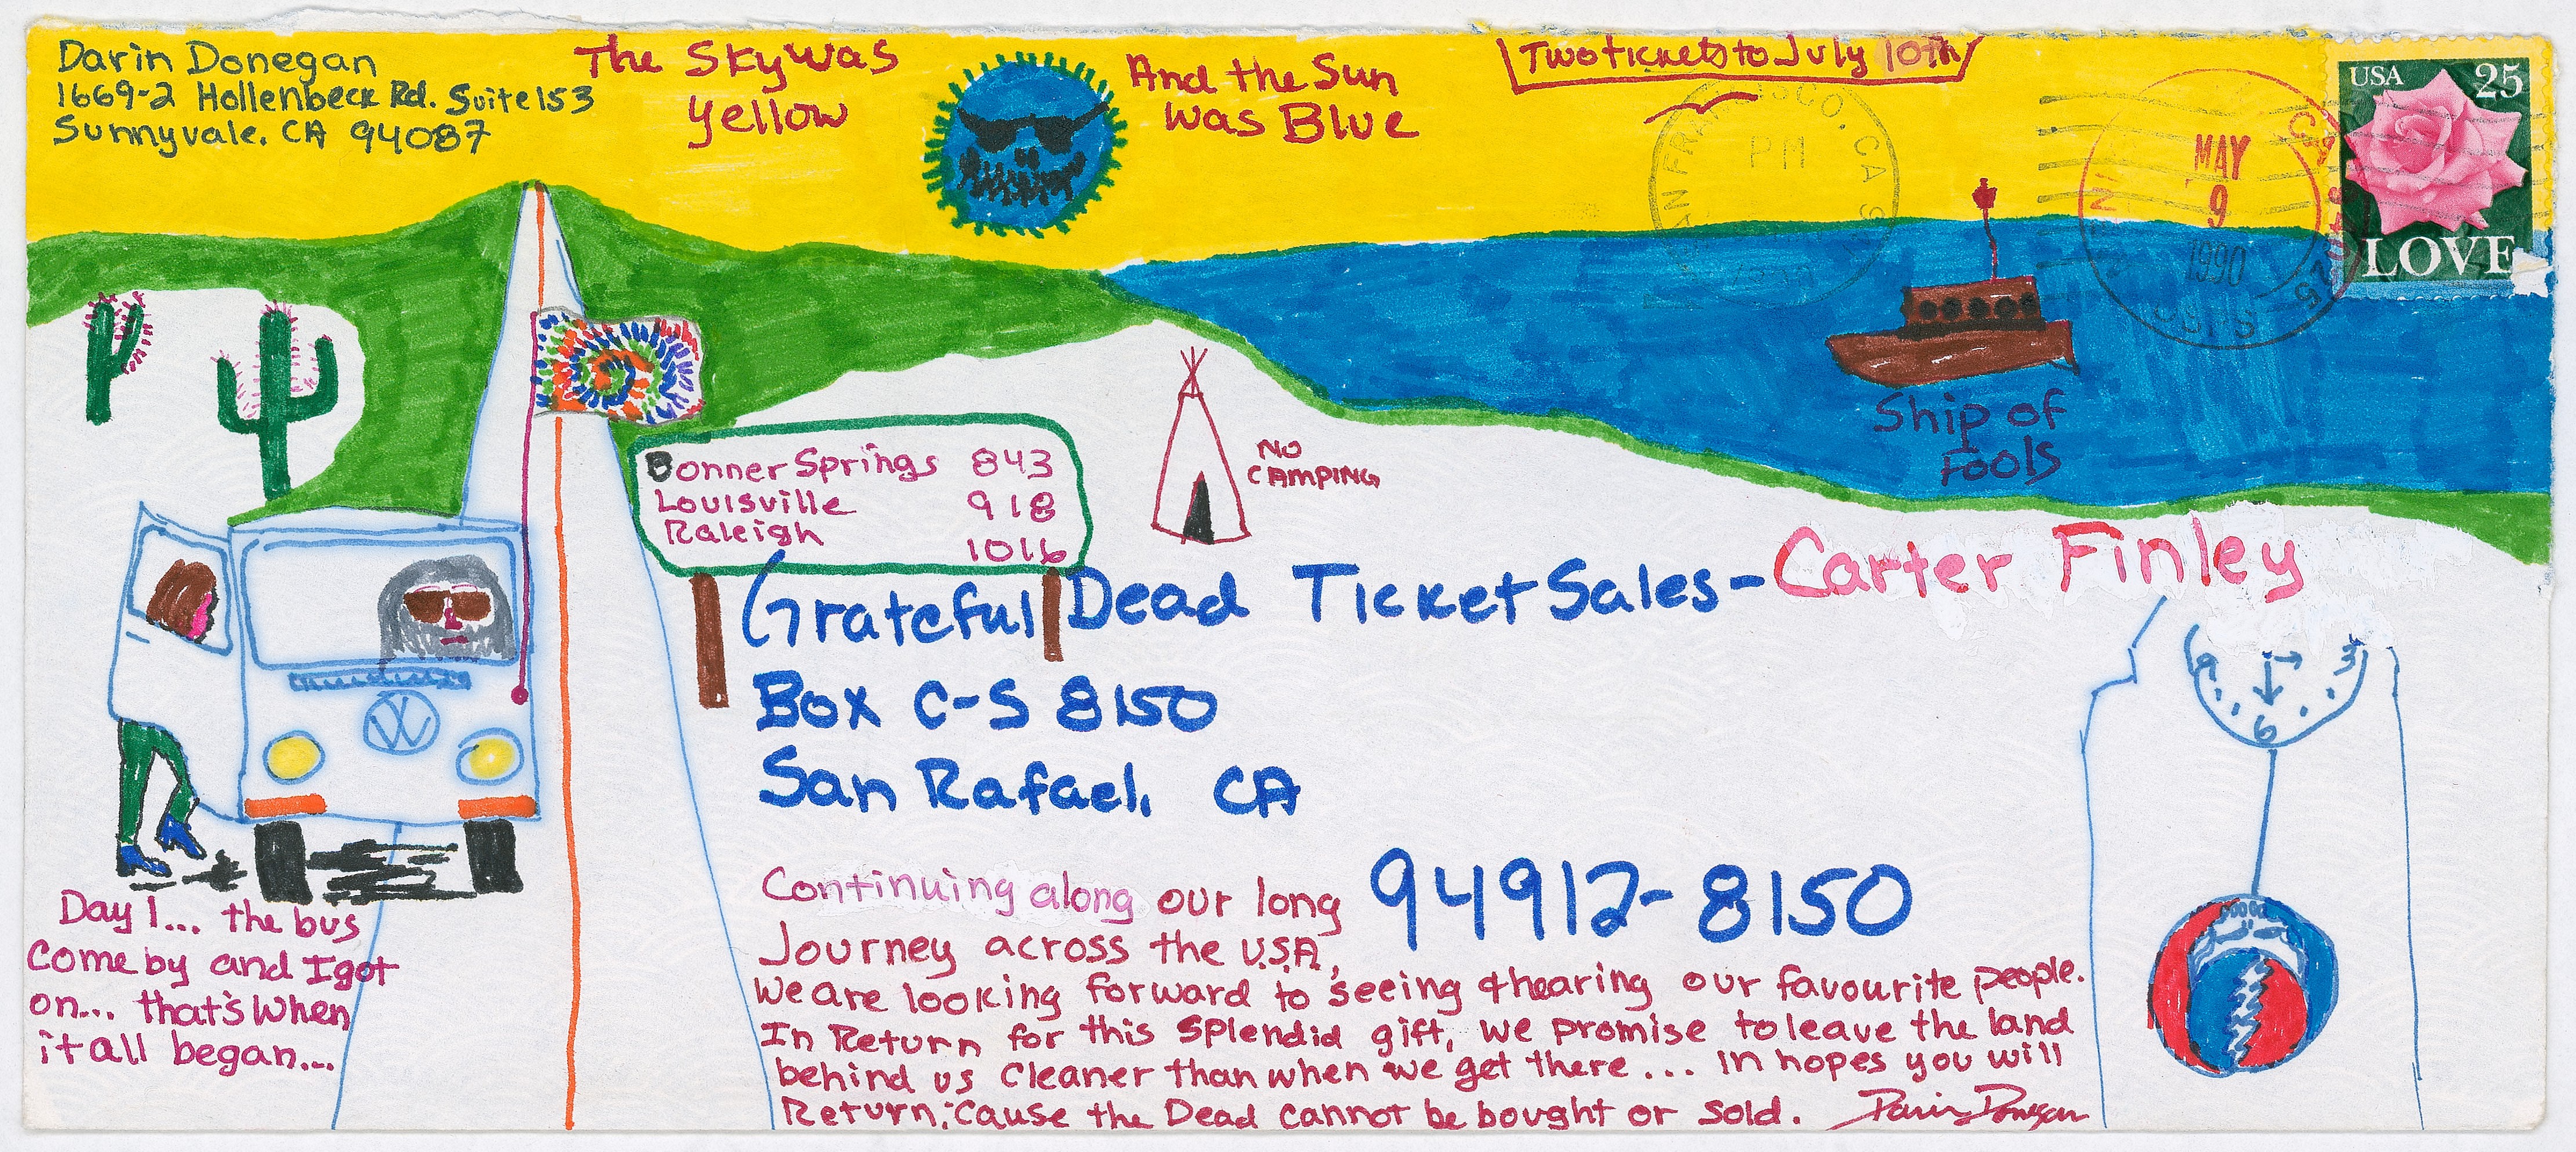 Darin Donegan
1669-2 Hollenbeck Rd. Suite 153
Sunnyvale, CA 94087
The Sky was
Yellow
And the Sun
was Blue
Two tickets to July 10th
USA 25
LOVE
PM
MAY
9
1990
USPS
Ship of
Fools
Bonner Springs 843
Louisville 918
Raleigh 1016
NO
CAMPING
Grateful Dead Ticket Sales - Carter Finley
Box C-S 8150
San Rafael, CA
94912-8150
VW
9 3
6
Day 1... the bus
come by and I got
on... that's when
it all began...
Continuing along our long
Journey across the U.S.A,
we are looking forward to seeing & hearing our favourite people.
In Return for this splendid gift, we promise to leave the land
behind us cleaner than when we get there... in hopes you will
Return; 'Cause the Dead cannot be bought or sold. Darin Donegan